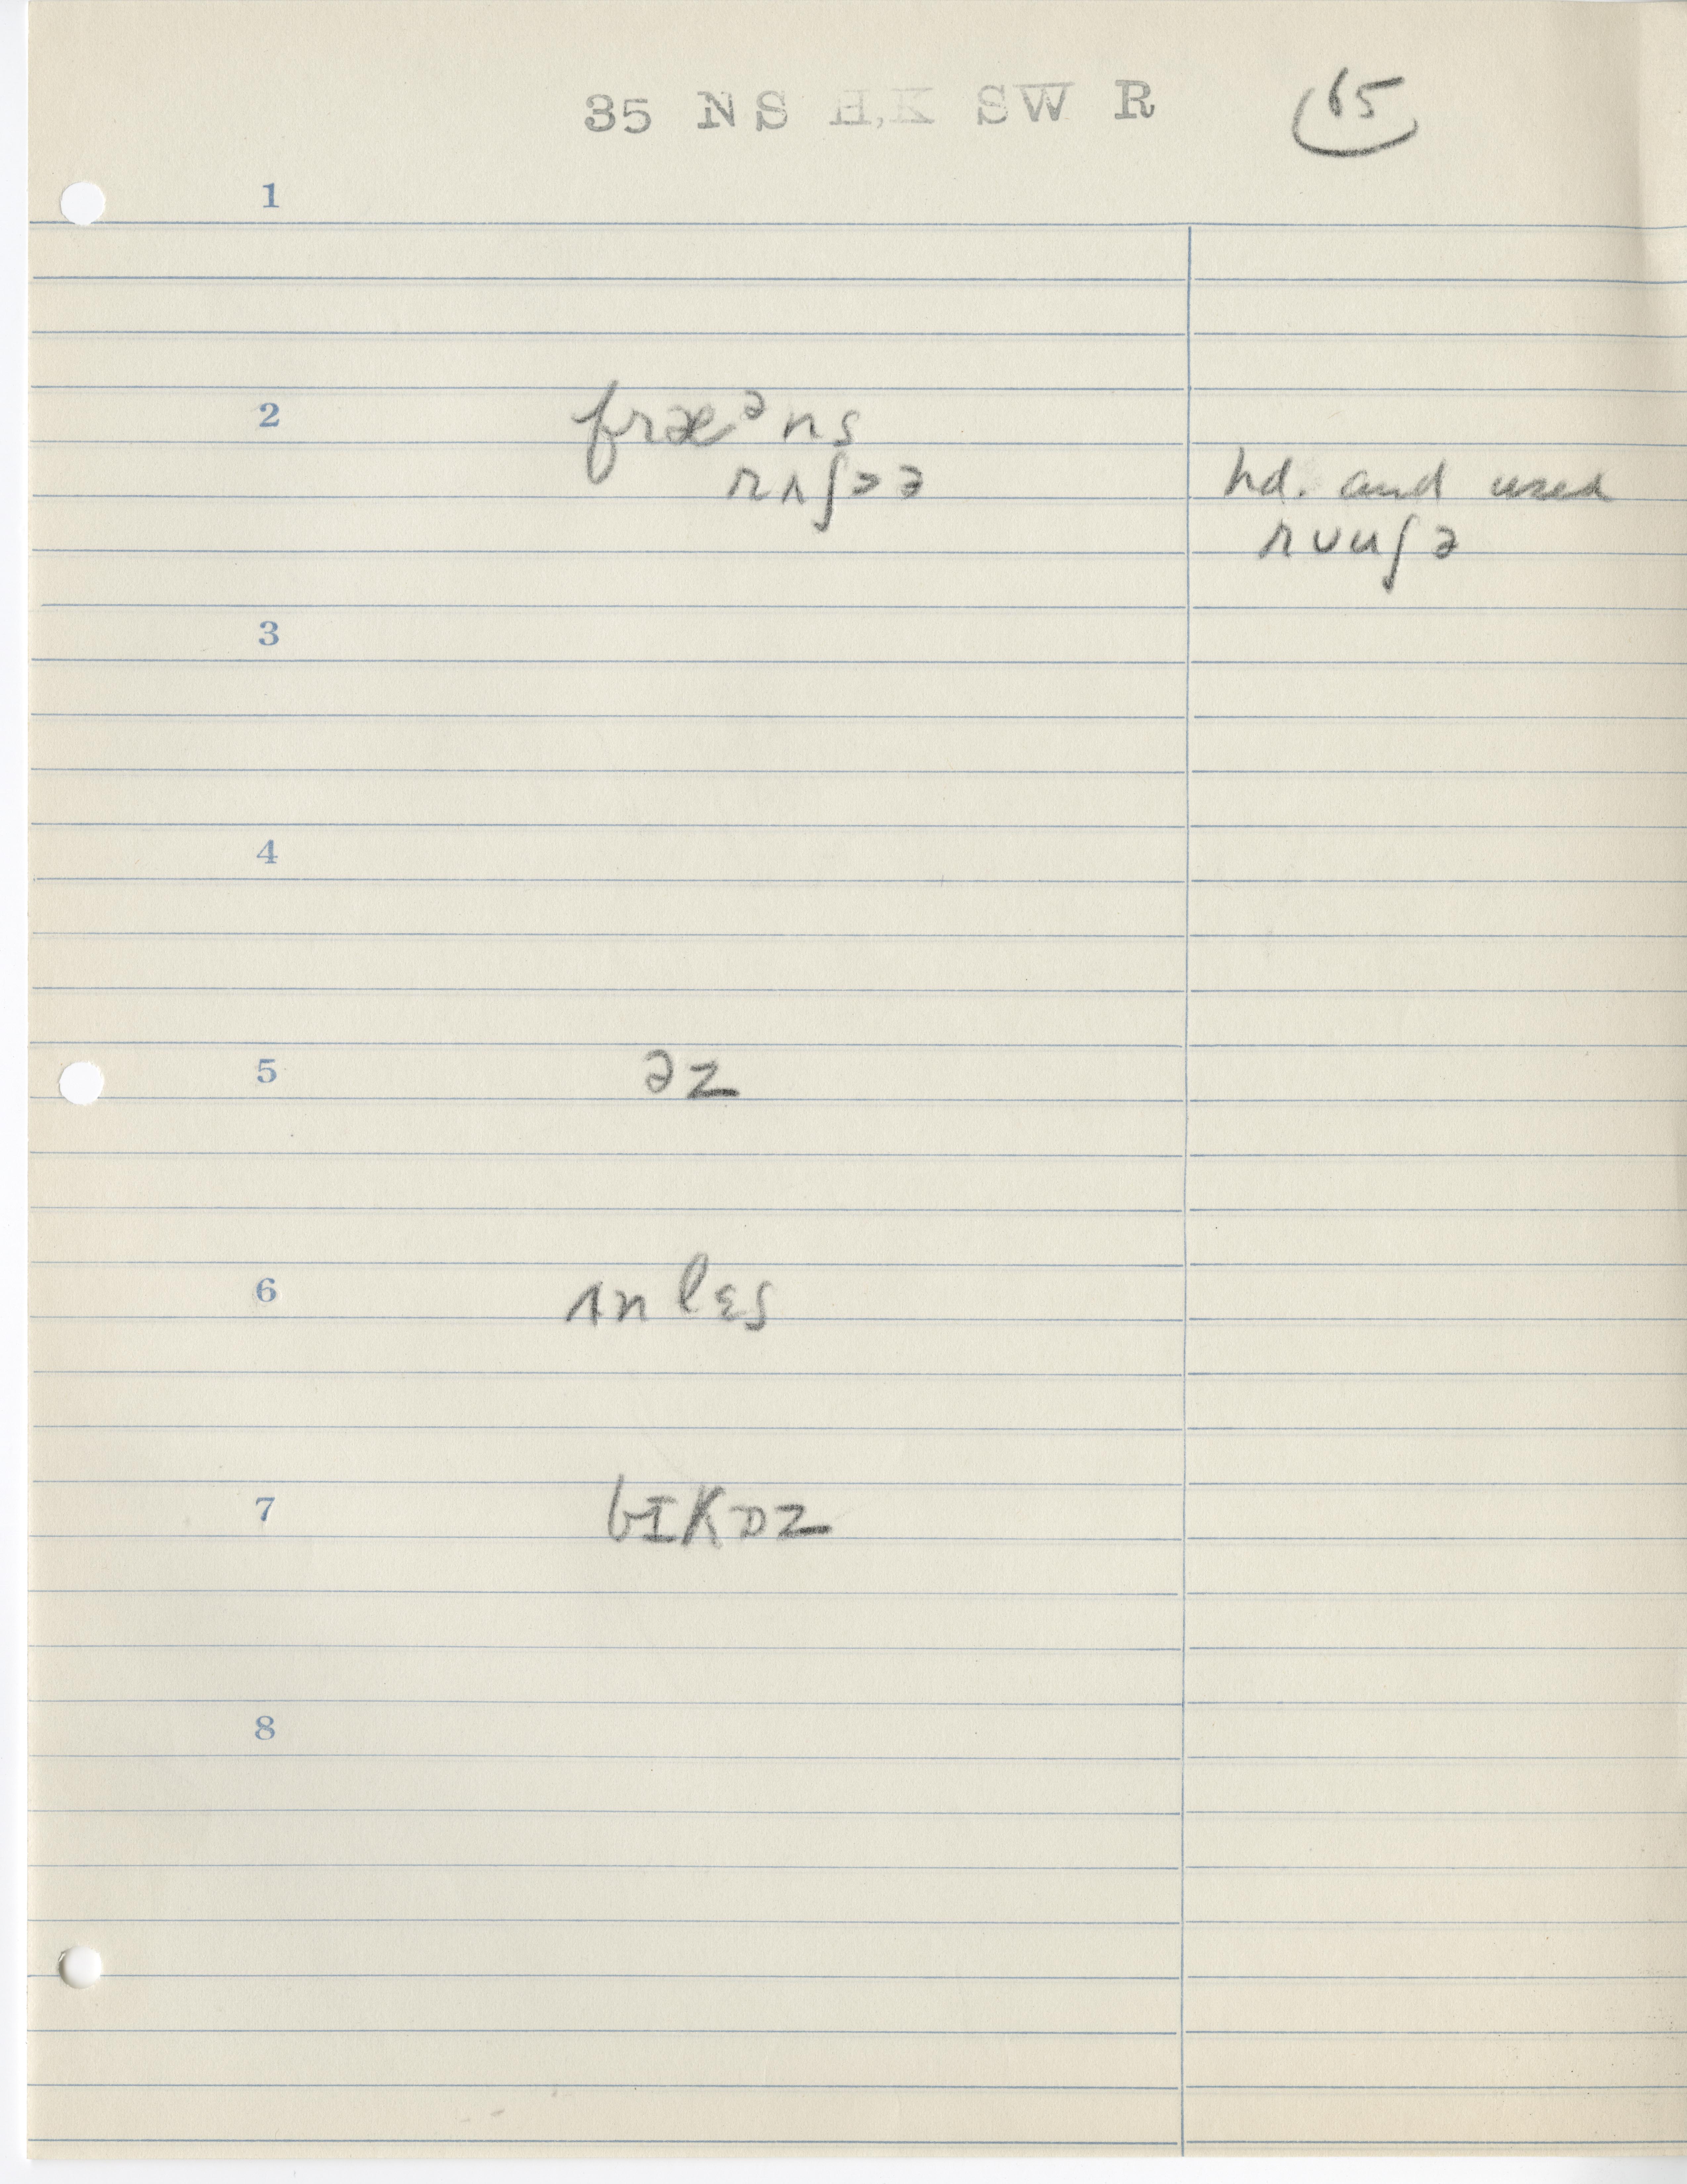 35 NS H,K SW R 65
1
2 fræᵊns
rʌʃɔə hd. and used
rʊuʃə
3
4
5 əz
6 ʌnlɛs
7 bɪKɒz
8